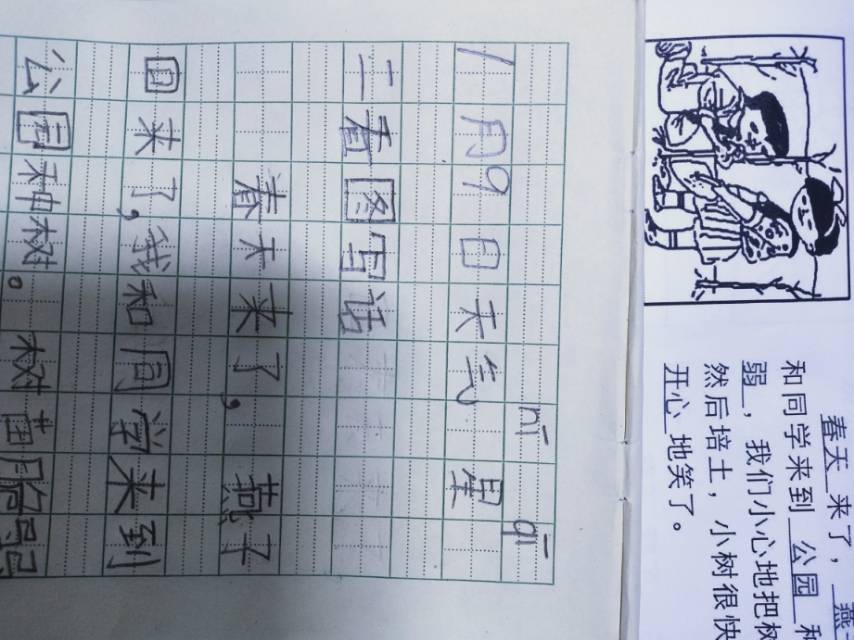 春天来了，燕
和同学来到公园
弱，我们小心地把
然后培土，小树很快
开心地笑了。
nī qī
1月9日天气 星
二看图写话
春天来了，燕子
回来了，我和同学来到
公园种树。树苗脆弱